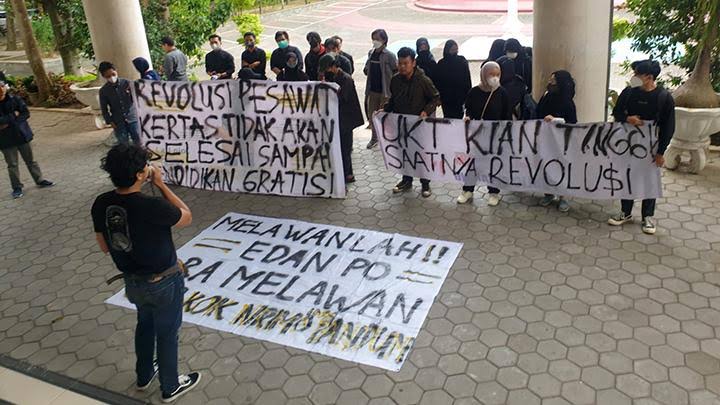 REVOLUSI PESAWAT
KERTAS TIDAK AKAN
SELESAI SAMPAI
PENDIDIKAN GRATIS!
UKT KIAN TINGGI
SAATNYA REVOLU$I
MELAWANLAH!!
= EDAN PO =
RA MELAWAN
KOK NRIMO PANDUM